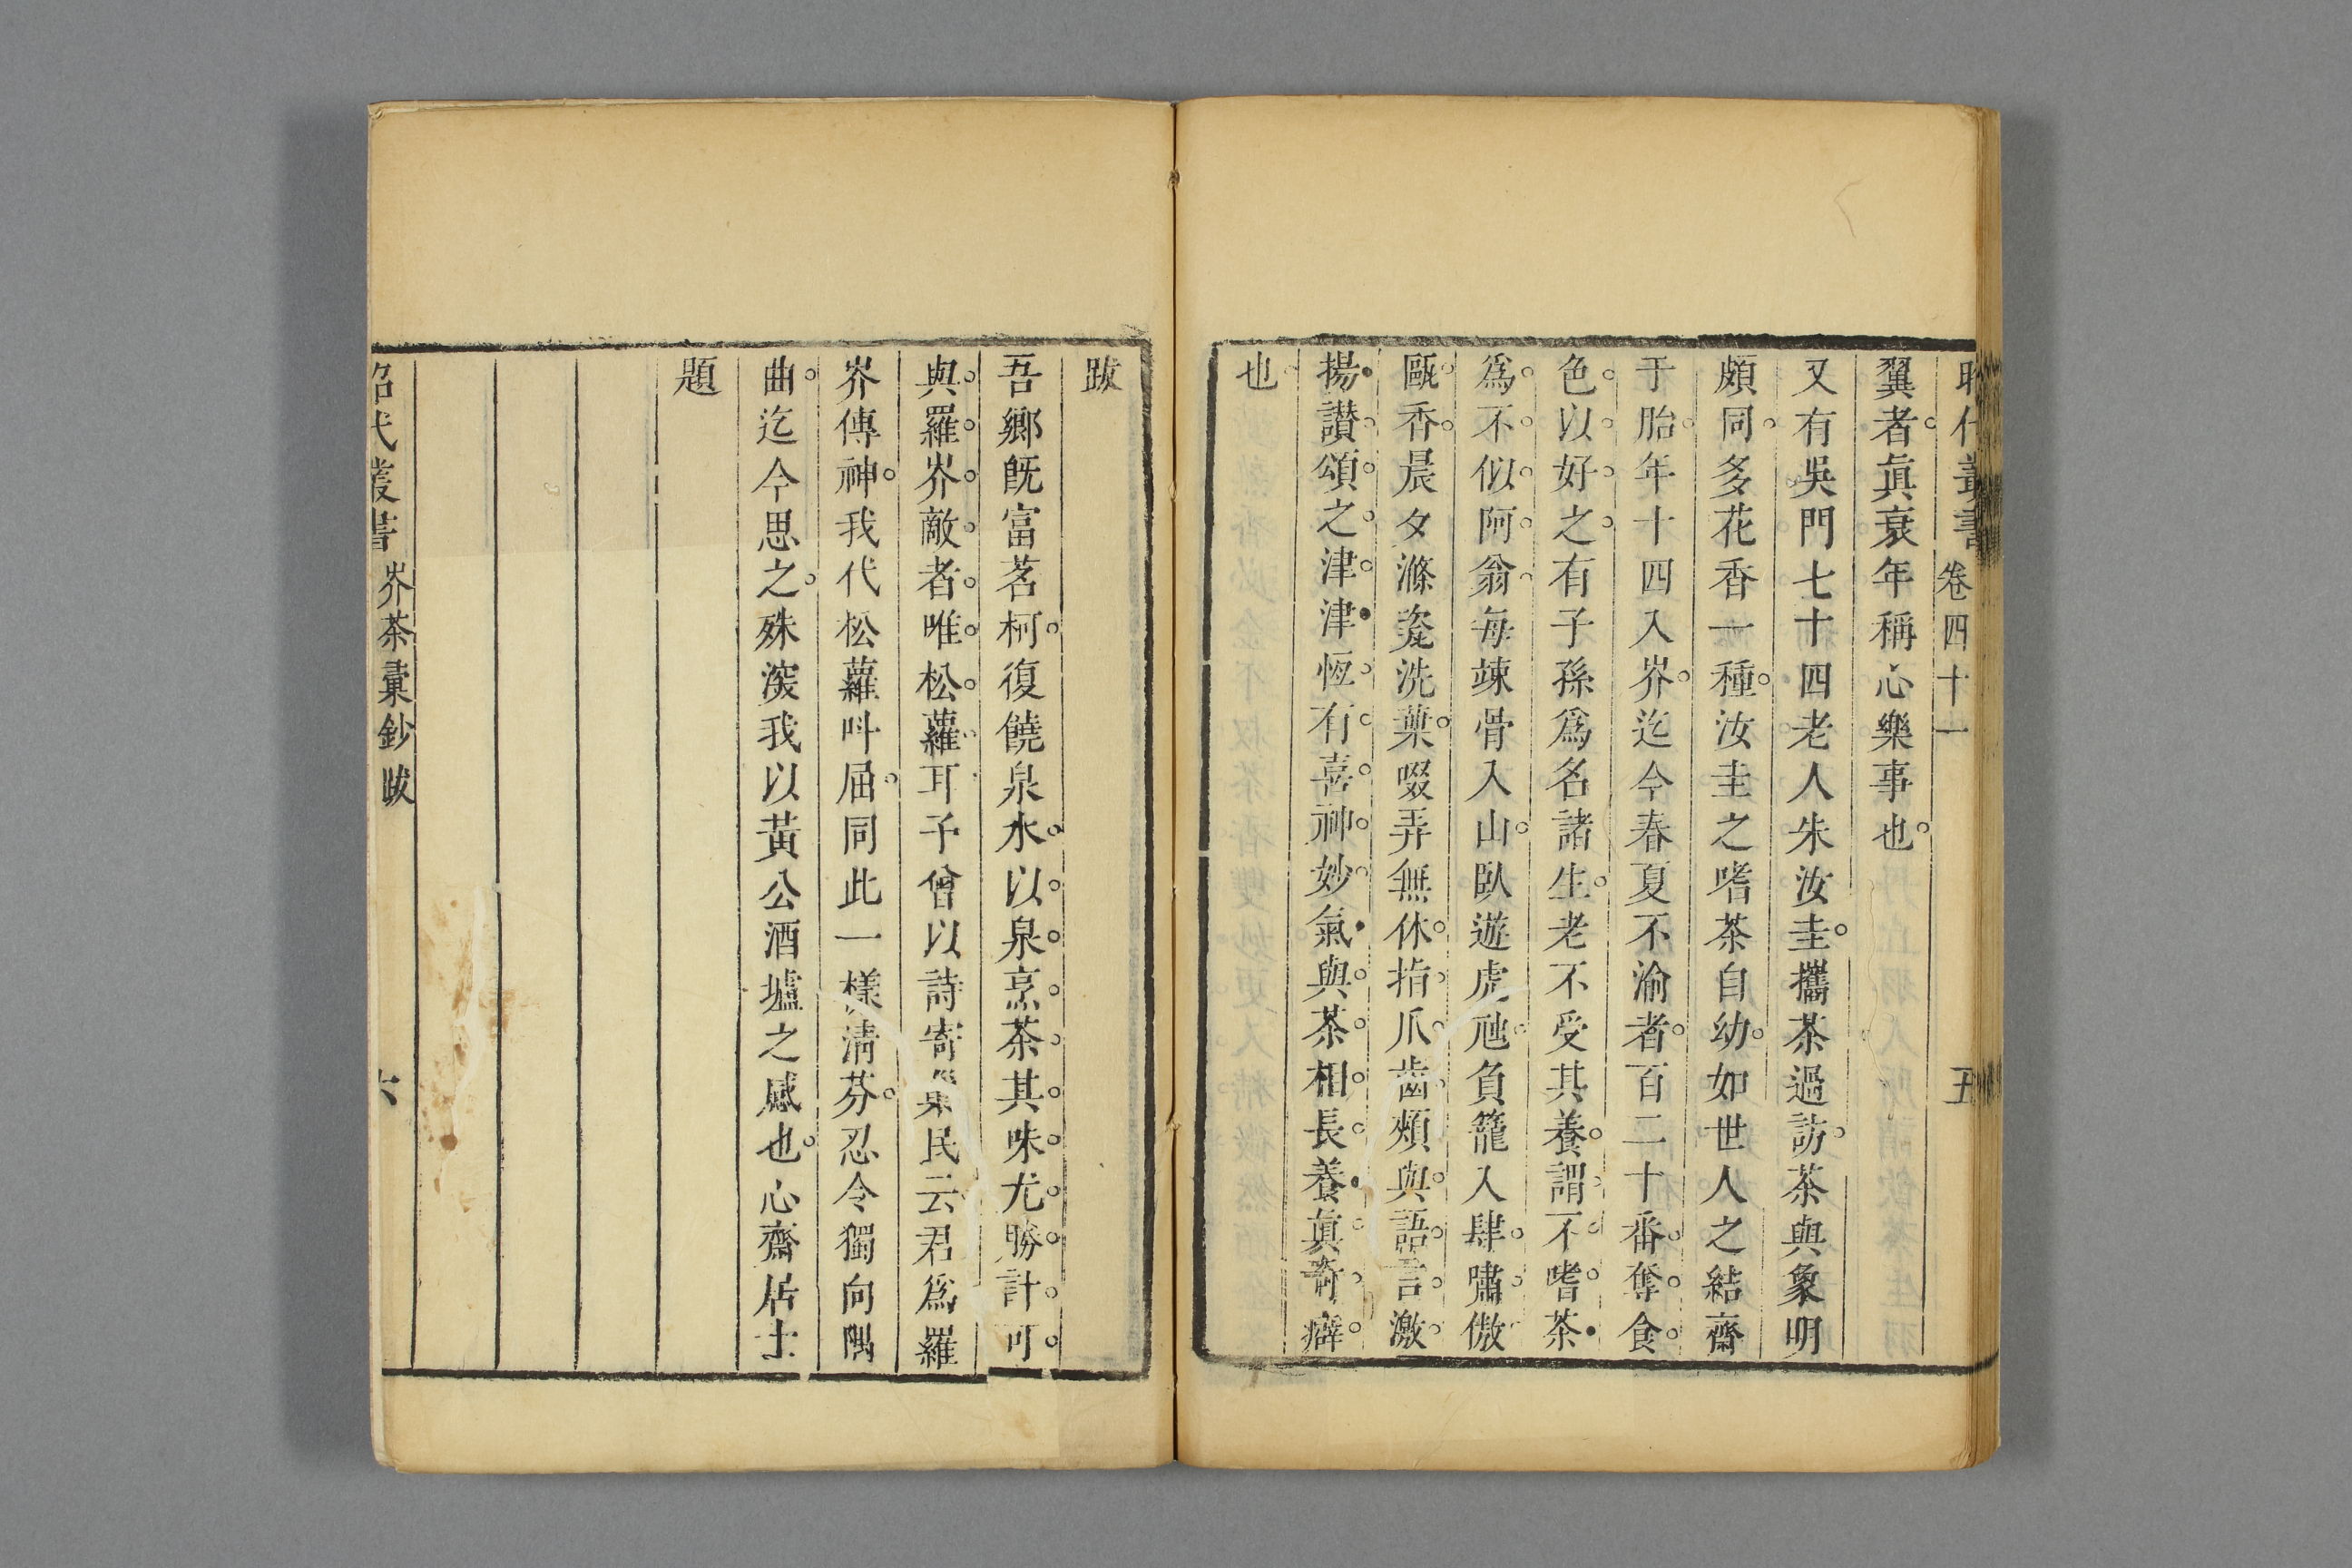 昭代叢書 卷四十一 五
翼者眞衰年稱心樂事也
又有吳門七十四老人朱汝圭攜茶過訪茶與象明
頗同多花香一種汝圭之嗜茶自幼如世人之結齋
于胎年十四入岕迄今春夏不渝者百二十番奪食
色以好之有子孫爲名諸生老不受其養謂不嗜茶
爲不似阿翁每竦骨入山臥遊虎虺負籠入肆嘯傲
甌香晨夕滌瓷洗葉啜弄無休指爪齒頰與語言激
揚讚頌之津津恆有喜神妙氣與茶相長養眞奇癖
也
跋
吾鄉旣富茗柯復饒泉水以泉烹茶其味尤勝計可
與羅岕敵者唯松蘿耳予曾以詩寄巢民云君爲羅
岕傳神我代松蘿叫屈同此一樣淸芬忍令獨向隅
曲迄今思之殊深我以黃公酒壚之感也心齋居士
題
昭代叢書 岕茶彙鈔 跋 六